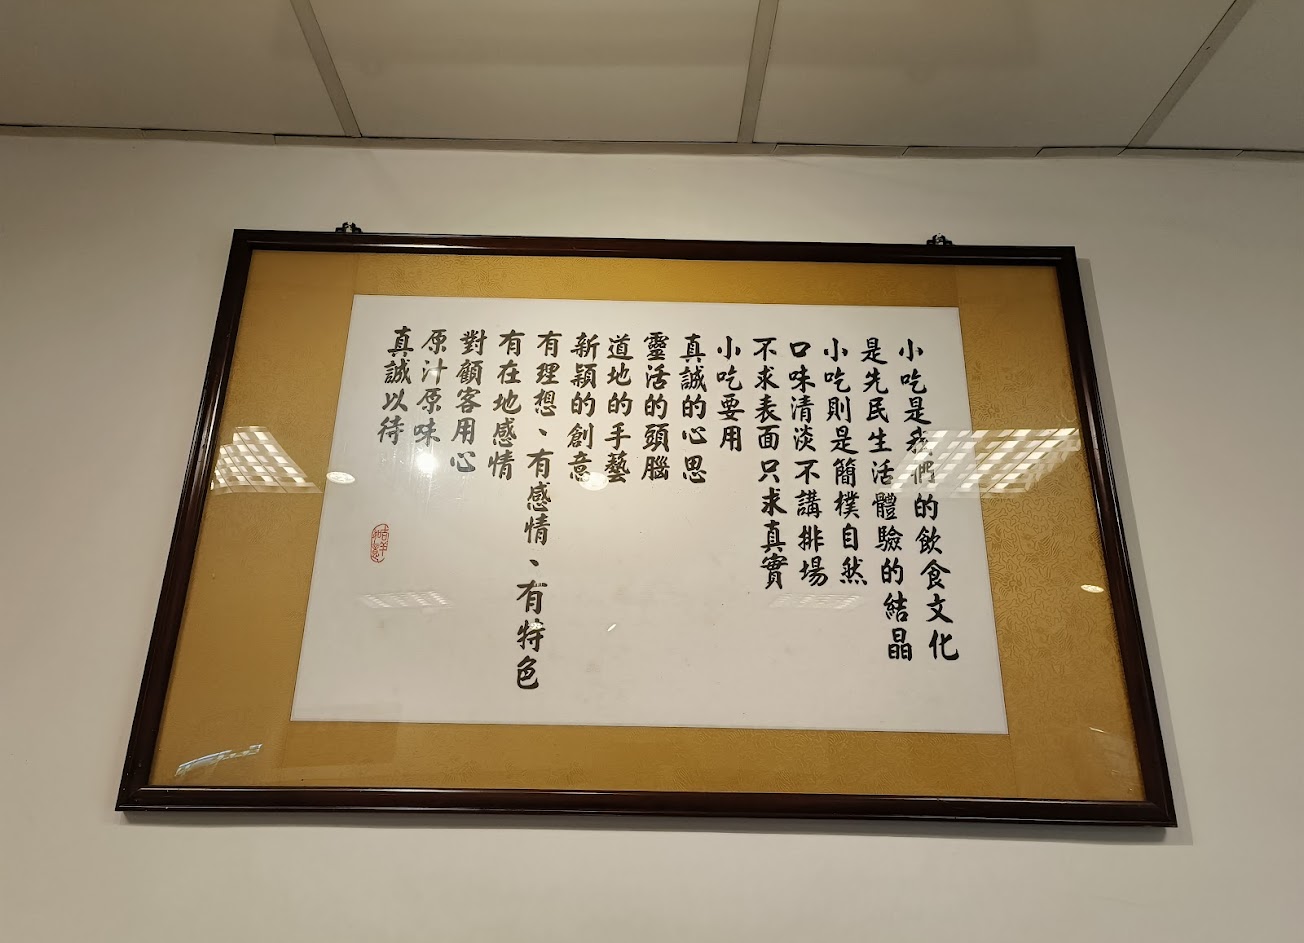 小吃是我們的飲食文化
是先民生活體驗的結晶
小吃則是簡樸自然
口味清淡不講排場
不求表面只求真實
小吃要用
真誠的心思
靈活的頭腦
道地的手藝
新穎的創意
有理想、有感情、有特色
有在地感情
對顧客用心
原汁原味
真誠以待